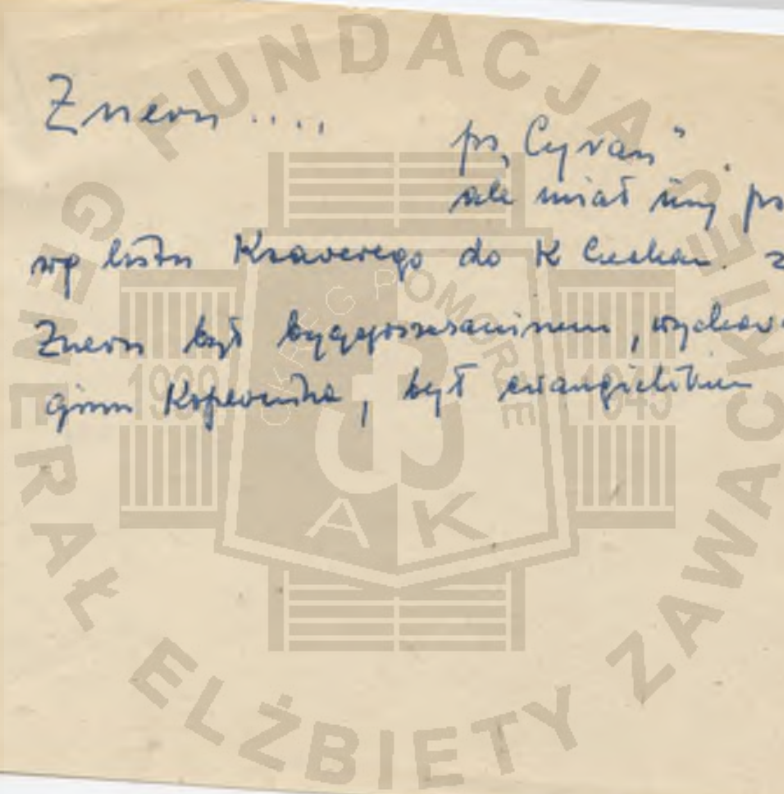 Znevn ....
ps. „Cyran”
ale miał inny ps
wg listu Ksawerego do K Ciechan. z
Znevn był bydgoszczaninem, wychow
gimn Kopernika, był ewangielikiem
FUNDACJA
GENERAŁ ELŻBIETY ZAWACKIE
OKRĘG POMORZE
1939 1945
AK